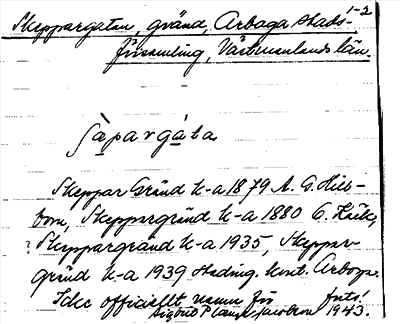 1-2
Skeppargatan, gränd, Arboga stads-
församling, Västmanlands län.
ʃàpargáta
Skeppar Gränd k-a 1879 A. G. Hiels-
trom, Skeppargränd k-a 1880 C.
Skeppargränd k-a 1935, Skeppar-
gränd k-a 1939 Hadng. kont. Arboga.
Icke officiellt namn för forts!
Sigbrit Plænge Jacobson 1943.